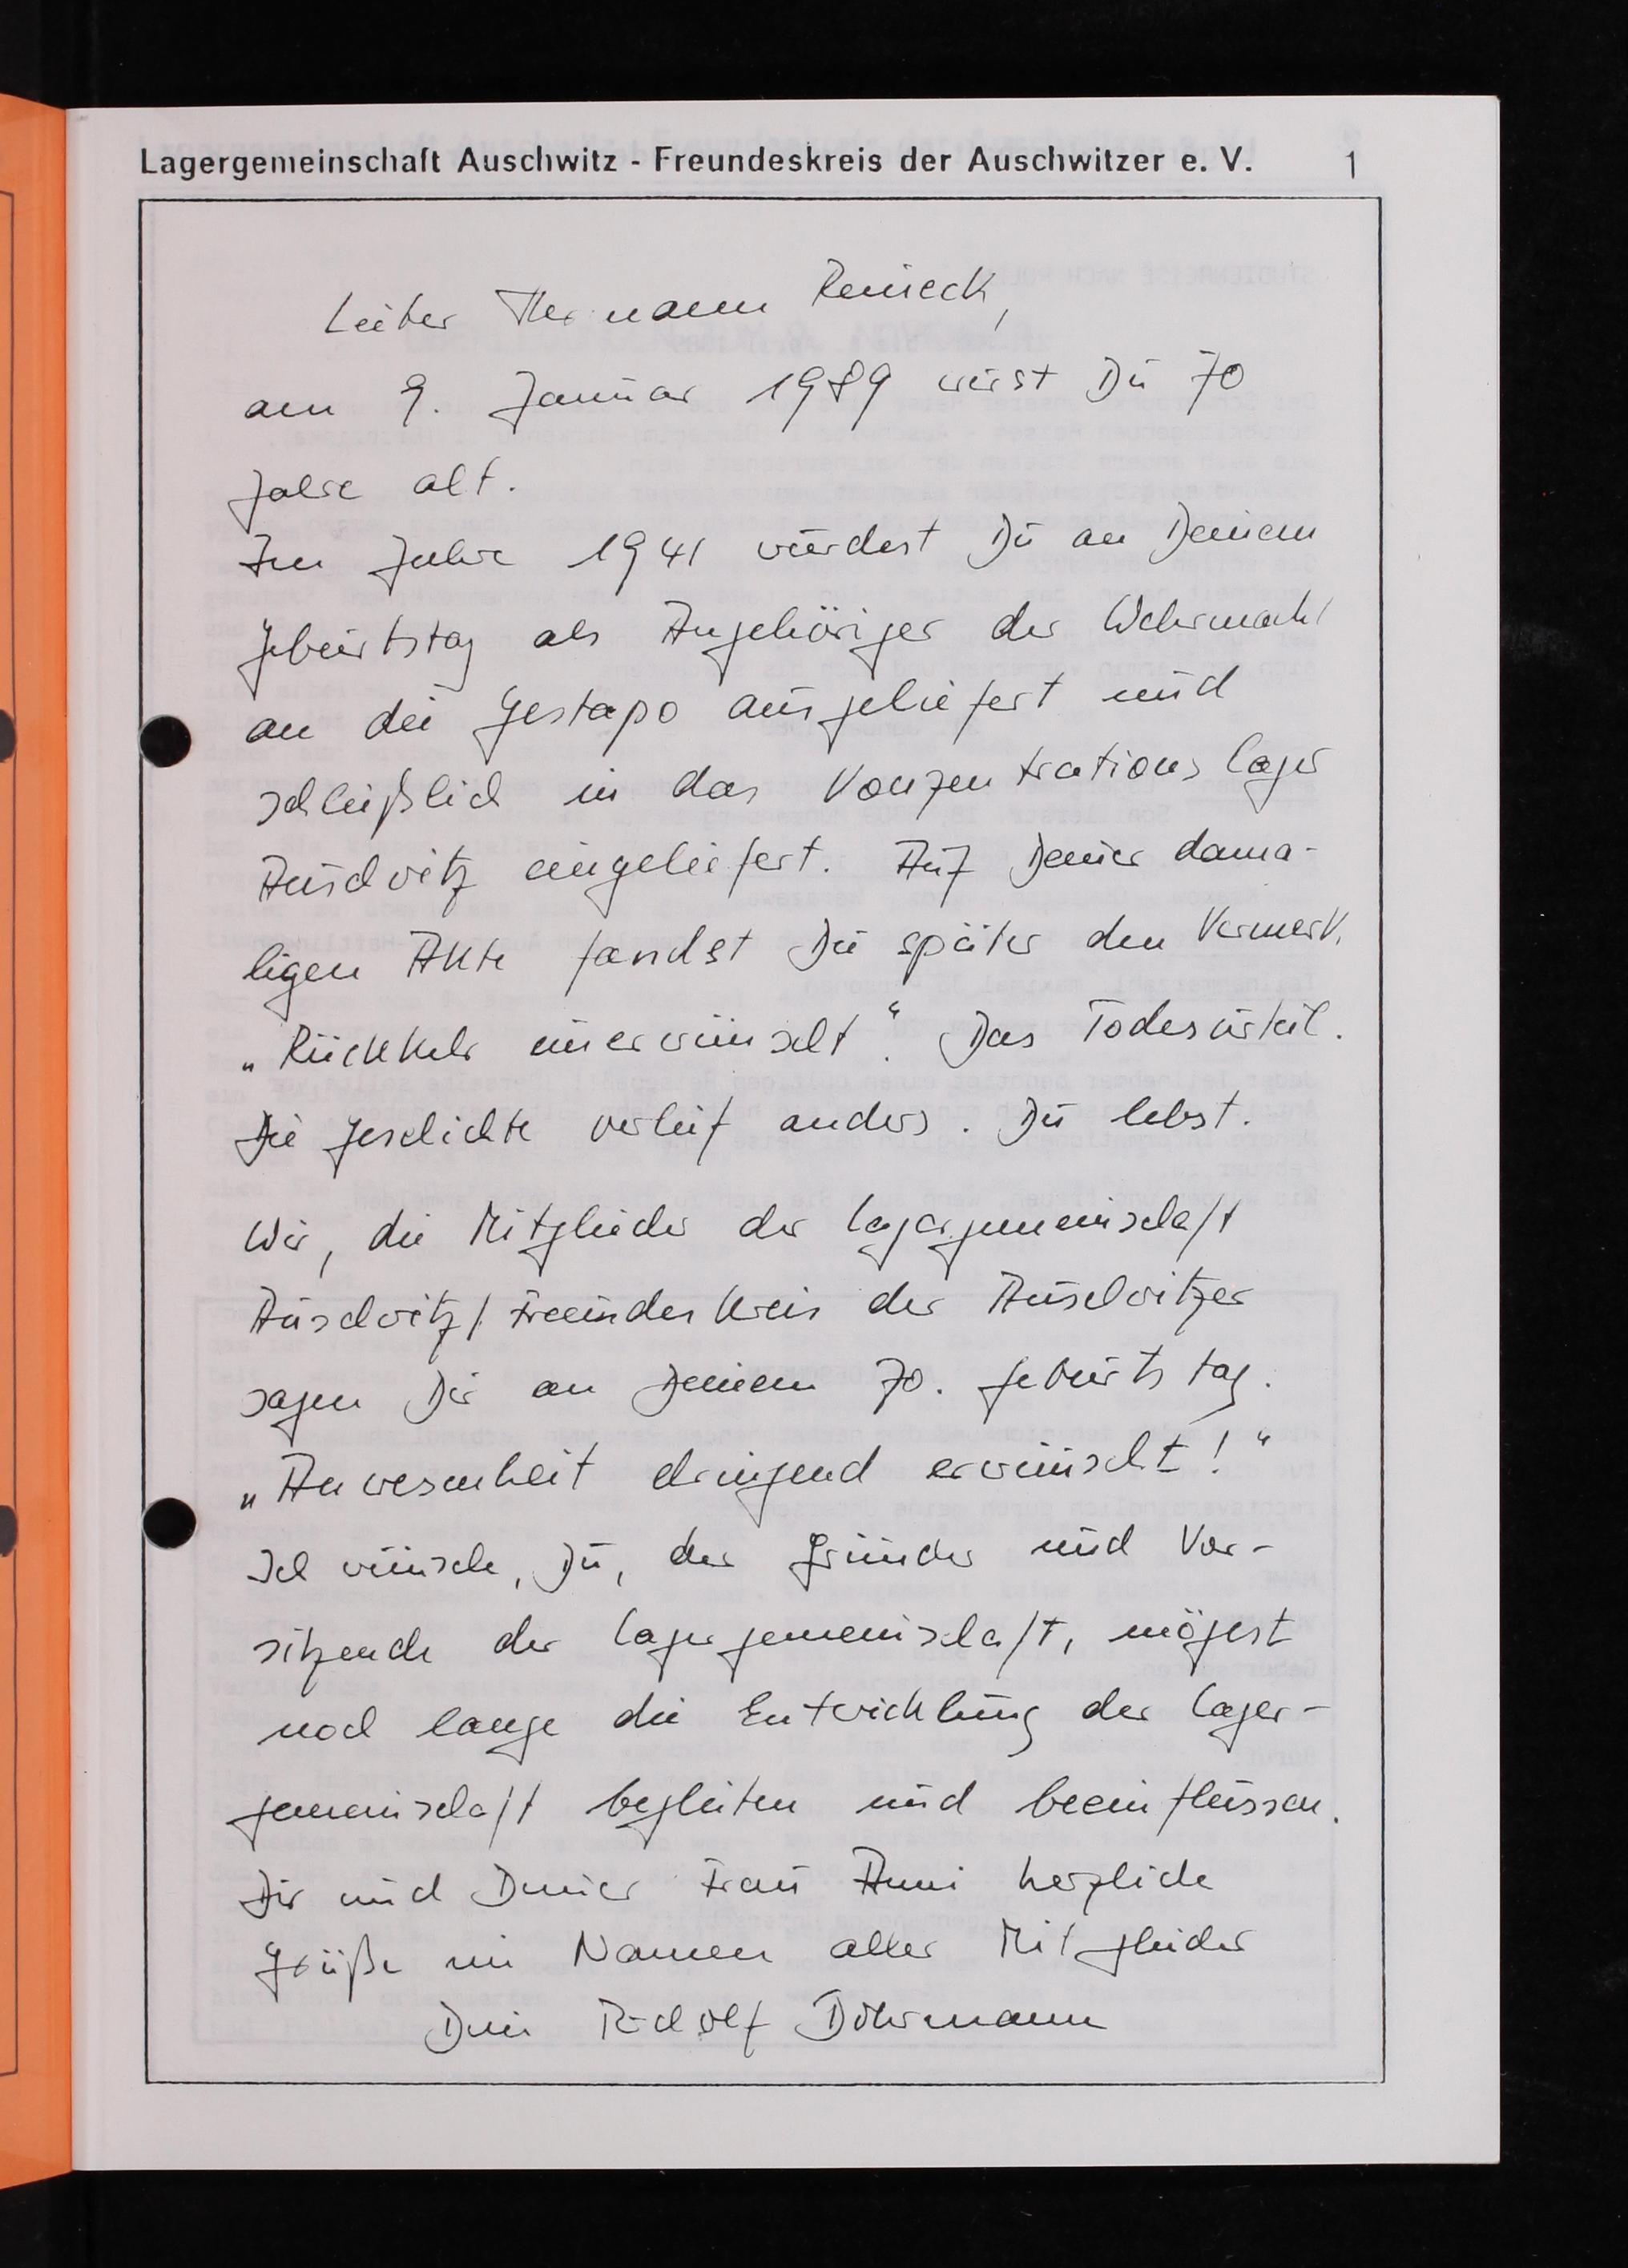 Lagergemeinschaft Auschwitz - Freundeskreis der Auschwitzer e. V. 1
Lieber Hermann Reineck,
am 9. Januar 1989 wirst Du 70
Jahre alt.
Im Jahre 1941 wurdest Du an Deinem
Geburtstag als Angehöriger der Wehrmacht
an die Gestapo ausgeliefert und
schließlich in das Konzentrationslager
Auschwitz eingeliefert. Auf Deiner dama-
ligen Akte fandst Du später den Vermerk,
„Rückkehr unerwünscht“. Das Todesurteil.
Die Geschichte verlief anders. Du lebst.
Wir, die Mitglieder der Lagergemeinschaft
Auschwitz/Freundeskreis der Auschwitzer
sagen Dir an Deinem 70. Geburtstag.
„Anwesenheit dringend erwünscht!“
Ich wünsche, Du, der Gründer und Vor-
sitzende der Lagergemeinschaft, mögest
noch lange die Entwicklung der Lager-
gemeinschaft begleiten und beeinflussen.
Dir und Deiner Frau Anni herzliche
Grüße im Namen aller Mitglieder
Dein Rudolf Dohrmann